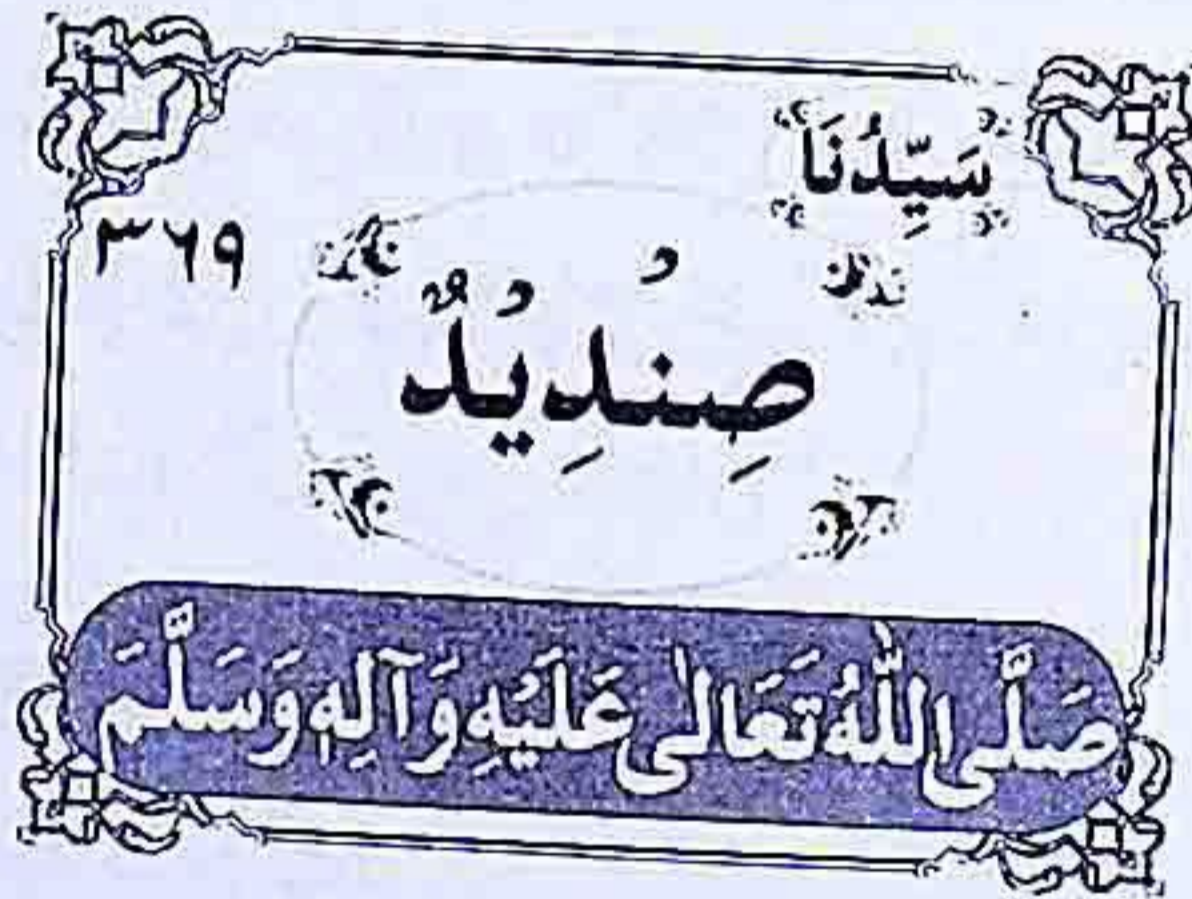 سَيِّدُنَا
۳۶۹
صِنْدِيْدٌ
صَلَّى اللّٰهُ تَعَالٰى عَلَيْهِ وَآلِهٖ وَسَلَّمَ